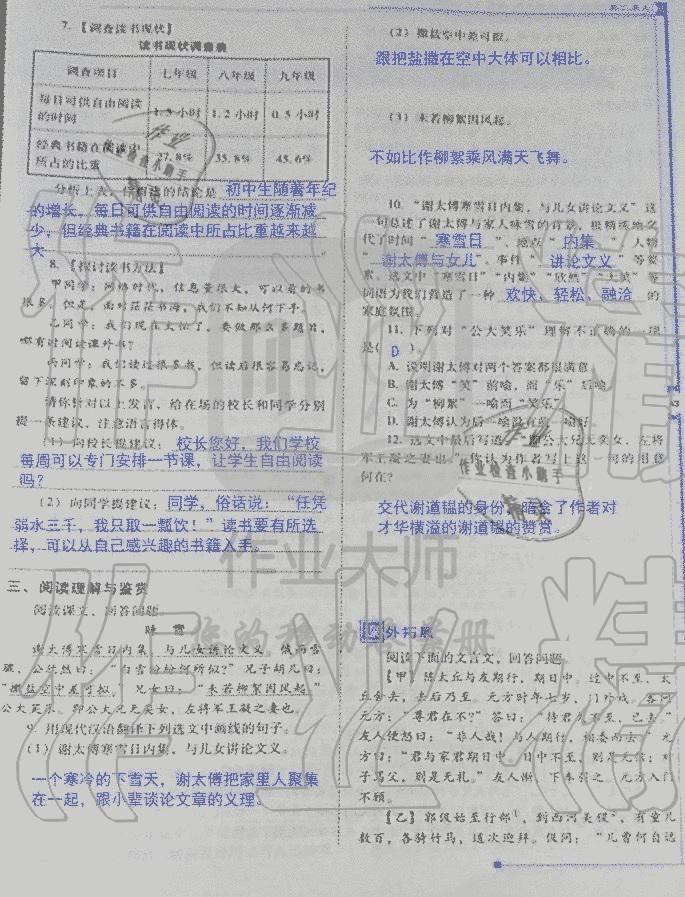 7. 【调查读书现状】
读书现状调查表
调查项目 七年级 八年级 九年级
每日可供自由阅读
的时间 1.5小时 1.2小时 0.5小时
经典书籍在阅读中
所占的比重 27.8% 35.8% 45.6%
分析上表，你得出的结论是 初中生随着年纪
的增长，每日可供自由阅读的时间逐渐减
少，但经典书籍在阅读中所占比重越来越
大
8. 【探讨读书方法】
甲同学：网络时代，信息量很大，可以看的书
很多。但是，面对茫茫书海，我们不知从何下手。
乙同学：我们现在太忙了，要做那么多题目，
哪有时间读课外书？
丙同学：我们读过很多书，但读后很容易忘记，
留下深刻印象的不多。
请你针对以上发言，给在场的校长和同学分别
提一条建议，注意语言得体。
（1）向校长提建议：校长您好，我们学校
每周可以专门安排一节课，让学生自由阅读
吗？
（2）向同学提建议：同学，俗话说：“任凭
弱水三千，我只取一瓢饮！”读书要有所选
择，可以从自己感兴趣的书籍入手。
三、阅读理解与鉴赏
阅读课文，回答问题。
咏雪
谢太傅寒雪日内集，与儿女讲论文义。俄而雪
骤，公欣然曰：“白雪纷纷何所似？”兄子胡儿曰：
“撒盐空中差可拟。”兄女曰：“未若柳絮因风起。”
公大笑乐。即公大兄无奕女，左将军王凝之妻也。
9. 用现代汉语翻译下列选文中画线的句子。
（1）谢太傅寒雪日内集，与儿女讲论文义。
一个寒冷的下雪天，谢太傅把家里人聚集
在一起，跟小辈谈论文章的义理。
（2）撒盐空中差可拟。
跟把盐撒在空中大体可以相比。
（3）未若柳絮因风起。
不如比作柳絮乘风满天飞舞。
10. “谢太傅寒雪日内集，与儿女讲论文义”这
句总述了谢太傅与家人咏雪的背景，极精炼地交
代了时间“寒雪日”、地点“内集”、人物
“谢太傅与女儿”、事件“讲论文义”等要
素。选文中“寒雪日”“内集”“欣然”“大笑”等
词语为我们营造了一种 欢快、轻松、融洽 的
家庭氛围。
11. 下列对“公大笑乐”理解不正确的一项
是（ D ）。
A. 说明谢太傅对两个答案都很满意
B. 谢太傅“笑”前喻，而“乐”后喻
C. 为“柳絮”一喻而“笑乐”
D. 谢太傅认为后一喻没有前一喻好
12. 选文中最后写道：“即公大兄无奕女，左将
军王凝之妻也。”你认为作者写上这一句的用意
何在？
交代谢道韫的身份，暗含了作者对
才华横溢的谢道韫的赞赏。
课外拓展
阅读下面的文言文，回答问题。
【甲】陈太丘与友期行，期日中。过中不至，太
丘舍去，去后乃至。元方时年七岁，门外戏。客问
元方：“尊君在不？”答曰：“待君久不至，已去。”
友人便怒曰：“非人哉！与人期行，相委而去。”元
方曰：“君与家君期日中。日中不至，则是无信；对
子骂父，则是无礼。”友人惭，下车引之。元方入门
不顾。
【乙】郭伋始至行部，到西河美稷，有童儿
数百，各骑竹马，道次迎拜。伋问：“儿曹何自远
作业
作业检查小助手
作业
作业检查小助手
作业大师
您的移动练习册
作业精灵